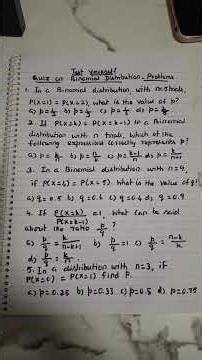 Test Yourself
Quiz on Binomial Distribution - Problems
1. In a Binomial distribution with n=5 trials,
P(X=1) = P(X=2) what is the value of p?
2. If P(X=k) = P(X=k-1) in a Binomial
distribution with n trials, which of the
following expressions correctly represents p?
3. In a Binomial distribution with n=9,
if P(X=4) = P(X=5) what is the value of q?
a) q=0.5 b) q=0.6 c) q=0.4 d) q=0.9
4. If P(X=k)/P(X=k-1) = 1, what can be said
about the ratio p/q?
a) p/q = k/n-k+1 b) p/q = 1 c) p/q = n-k/k
d) p/q = k/n
5. In a distribution with n=3, if
P(X=0) = P(X=1) find P.
a) p=0.25 b) p=0.33 c) p=0.5 d) p=0.75